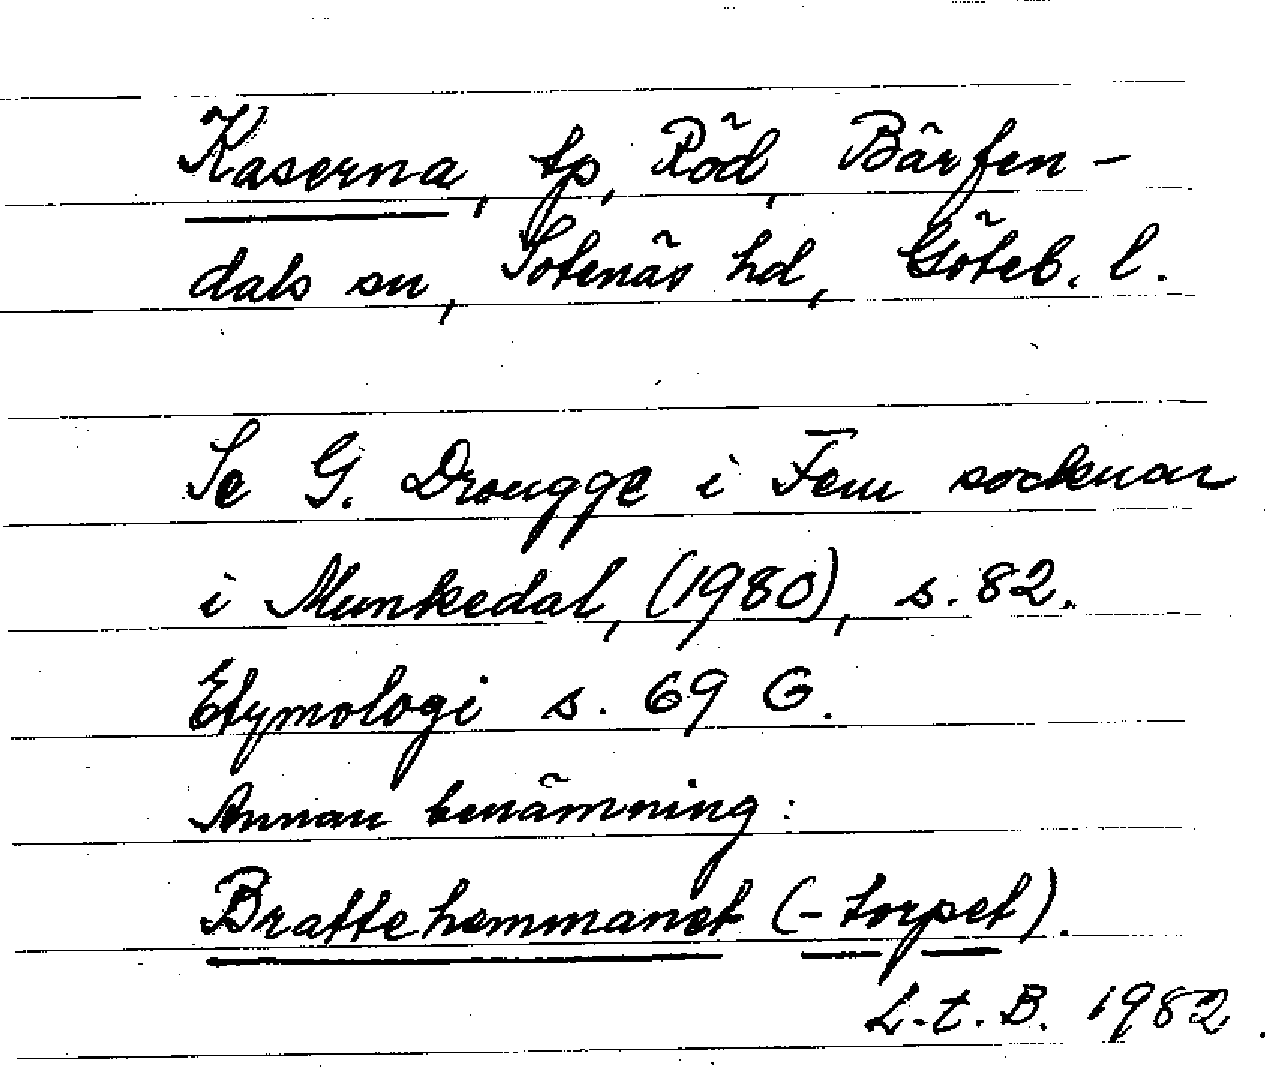 Kaserna, tp, Röd, Bärfen-
dals sn, Sotenäs hd, Göteb. l.
Se G. Drougge i Fem socknar
i Munkedal, (1980), s. 82.
Etymologi s. 69 G.
Annan benämning:
Brattehemmanet (-torpet).
L.t.B. 1982.